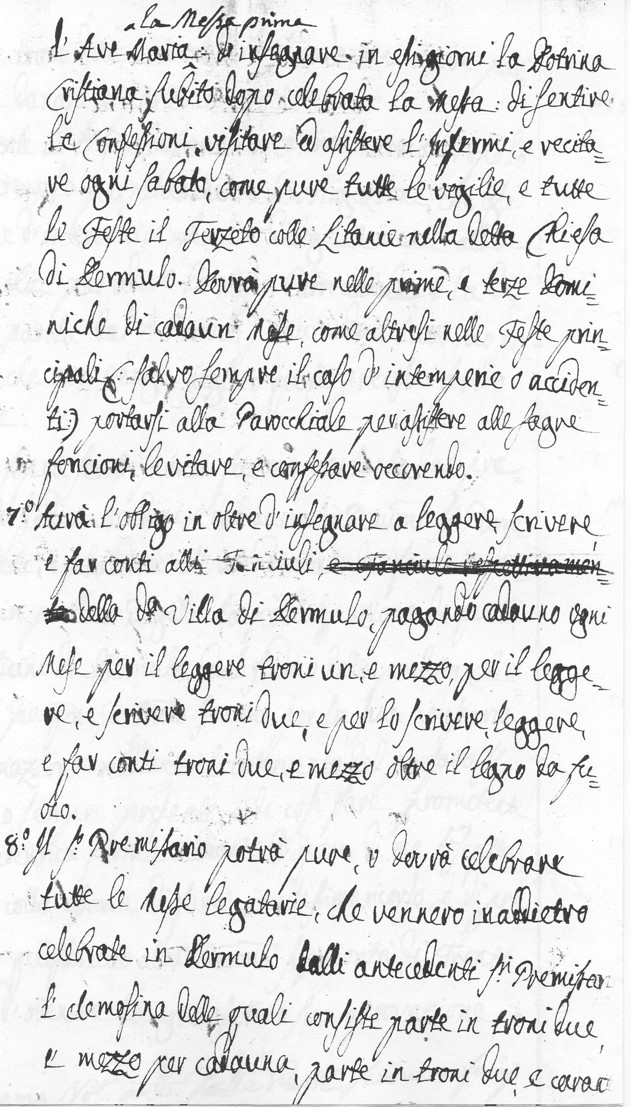 a la Messa prima
l'Ave Maria: d'insegnare in essi giorni la Dotrina
Cristiana subito dopo celebrata la Messa: di sentire
le Confessioni, visitare ed assistere l'Infermi, e recita=
re ogni sabato, come pure tutte le vigilie, e tutte
le Feste il Terzeto colle Litanie nella detta Chiesa
di Dermulo. Dovrà pure nelle prime, e terze Domi=
niche di cadaun Mese, come altresi nelle Feste prin=
cipali (: salvo sempre il caso d'intemperie o acciden=
ti:) portarsi alla Parocchiale per assistere alle sagre
foncioni, levitare, e confessare occorendo.
7.º Avrà l'obligo in oltre d'insegnare a leggere, scrivere,
e far conti alli Fanciuli, e Fanciule respettivamen=
te della dª Villa di Dermulo, pagando cadauno ogni
Mese per il leggere troni un, e mezzo, per il legge=
re, e scrivere troni due, e per lo scrivere, leggere,
e far conti troni due, e mezzo oltre il legno da fu=
oco.
8.º Il Sr. Premissario potrà pure, e dovrà celebrare
tutte le Messe legatarie, che vennero in addietro
celebrate in Dermulo dalli antecedenti Sri. Premissari
l'elemosina delle quali consiste parte in troni due,
e mezzo per cadauna, parte in troni due, e